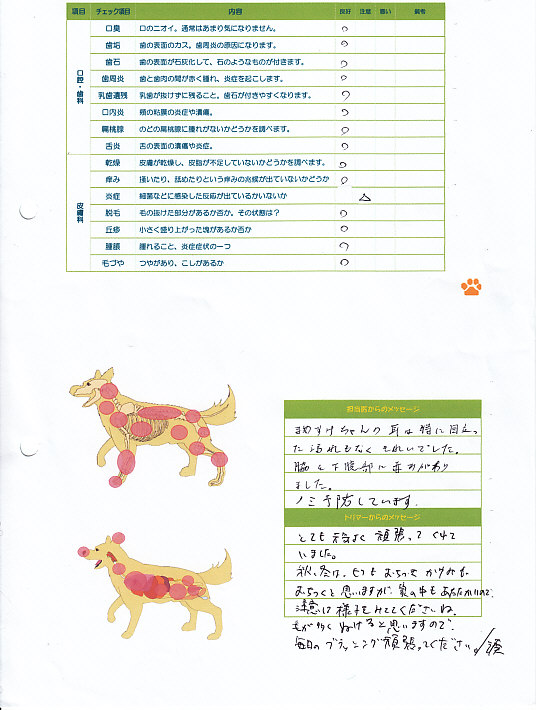 項目 チェック項目 内容 良好 注意 悪い 備考
口腔・歯科
口臭 口のニオイ。通常はあまり気になりません。 ○
歯垢 歯の表面のカス。歯周炎の原因になります。 ○
歯石 歯の表面が石灰化して、石のようなものが付きます。 ○
歯周炎 歯と歯肉の間が赤く腫れ、炎症を起こします。 ○
乳歯遺残 乳歯が抜けずに残ること。歯石が付きやすくなります。 ○
口内炎 頬の粘膜の炎症や潰瘍。 ○
扁桃腺 のどの扁桃腺に腫れがないかどうかを調べます。 ○
舌炎 舌の表面の潰瘍や炎症。 ○
皮膚科
乾燥 皮膚が乾燥し、皮脂が不足していないかどうかを調べます。 ○
痒み 掻いたり、舐めたりという痒みの兆候が出ていないかどうか ○
炎症 細菌などに感染した反応が出ているかいないか △
脱毛 毛の抜けた部分があるか否か。その状態は? ○
丘疹 小さく盛り上がった塊があるか否か ○
腫脹 腫れること、炎症症状の一つ ○
毛づや つやがあり、こしがあるか ○
担当医からのメッセージ
ちゃんの耳は特に目立っ
た汚れもなくきれいでした。
脇と下腹部に赤みがあり
ました。
ノミ予防しています。
トリマーからのメッセージ
とても 頑張ってくれて
いました。
秋、冬は、
と思いますが、 の中もあたたかいので、
注意は様子をみてくださいね。
毛が多くぬけると思いますので、
毎日のブラッシング頑張ってください。